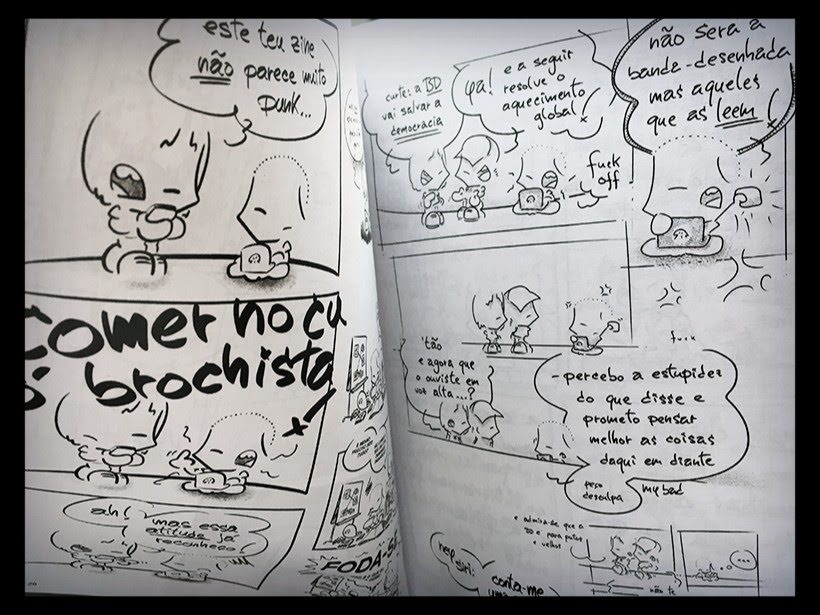 este teu zine
não parece muito
punk...
comer no cu
brochista
ah!
mas essa
atitude já
reconheço!
FODA-S
curte: a BD
vai salvar a
democracia
ya!
e a seguir
resolve o
aquecimento
global!
fuck
off
não será a
banda-desenhada
mas aqueles
que as leem!
'tão
e agora que
o ouviste em
voz alta...?
fuck
- percebo a estupidez
do que disse e
prometo pensar
melhor as coisas
daqui em diante
peço
desculpa
my bad
e admira-se que a
BD é para putos
e velhos
hey
siri:
conta-me
não te
...